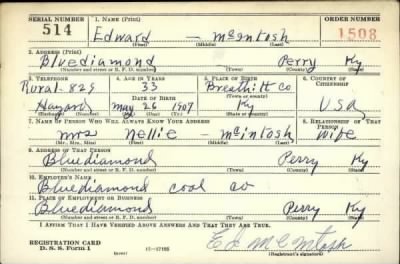 SERIAL NUMBER 1. NAME (Print) ORDER NUMBER
514 Edward - McIntosh 1508
(First) (Middle) (Last)
2. ADDRESS (Print)
Bluediamond Perry Ky
(Number and street or R. F. D. number) (Town) (County) (State)
3. TELEPHONE 4. AGE IN YEARS 5. PLACE OF BIRTH 6. COUNTRY OF CITIZENSHIP
Rural-829 33 Breathitt Co
DATE OF BIRTH (Town or county)
Hazard May 26 1907 Ky USA
(Exchange) (Number) (Mo.) (Day) (Yr.) (State or country)
7. NAME OF PERSON WHO WILL ALWAYS KNOW YOUR ADDRESS 8. RELATIONSHIP OF THAT PERSON
Mrs Nellie - McIntosh Wife
(Mr., Mrs., Miss) (First) (Middle) (Last)
9. ADDRESS OF THAT PERSON
Bluediamond Perry Ky
(Number and street or R. F. D. number) (Town) (County) (State)
10. EMPLOYER'S NAME
Bluediamond coal co
11. PLACE OF EMPLOYMENT OR BUSINESS
Bluediamond Perry Ky
(Number and street or R. F. D. number) (Town) (County) (State)
I AFFIRM THAT I HAVE VERIFIED ABOVE ANSWERS AND THAT THEY ARE TRUE.
REGISTRATION CARD
D. S. S. Form 1 (over) Ed McIntosh
(Registrant's signature)